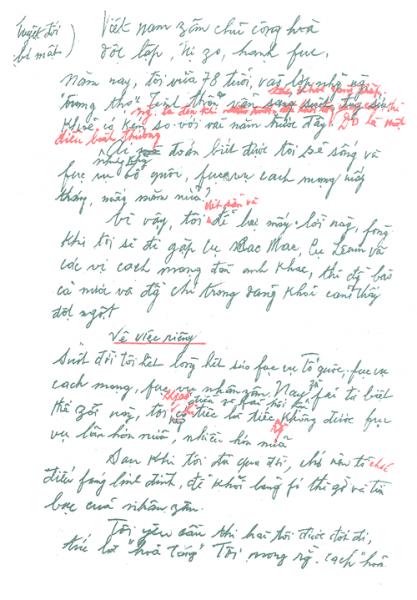 Tuyệt đối
bí mật)
Việt nam zân chủ cộng hoà
độc lập, tự zo, hạnh fúc,
Năm nay, tôi vừa 78 tuổi, vào lớp những người
"trung thọ". Tinh thần vẫn sáng suốt, tuy sức
khoẻ có kém so với vài năm trước đây. Đó là một
điều bình thường
đoán biết được tôi sẽ sống và
fục vụ tổ quốc, fục vụ cách mạng mấy
tháng, mấy năm nữa?
Vì vậy, tôi viết sẵn và để lại mấy lời này, fòng
khi tôi sẽ đi gặp cụ Các Mác, Cụ Lênin và
các vị cách mạng đàn anh khác, thì đồng bào
cả nước và đồng chí trong đảng khỏi cảm thấy
đột ngột
Về việc riêng
Suốt đời tôi hết lòng hết sức fục vụ Tổ quốc, fục vụ
cách mạng, fục vụ nhân zân. Nay zù fải từ biệt
thế zới này, tôi tiếc là tiếc không được fục
vụ lâu hơn nữa, nhiều hơn nữa
Sau khi tôi đã qua đời, chớ nên tổ chức
điếu fúng linh đình, để khỏi lãng fí thì zờ và tiền
bạc của nhân zân.
Tôi yêu cầu thi hài tôi được đốt đi,
tức là "hoả táng". Tôi mong rằng cách "hoả